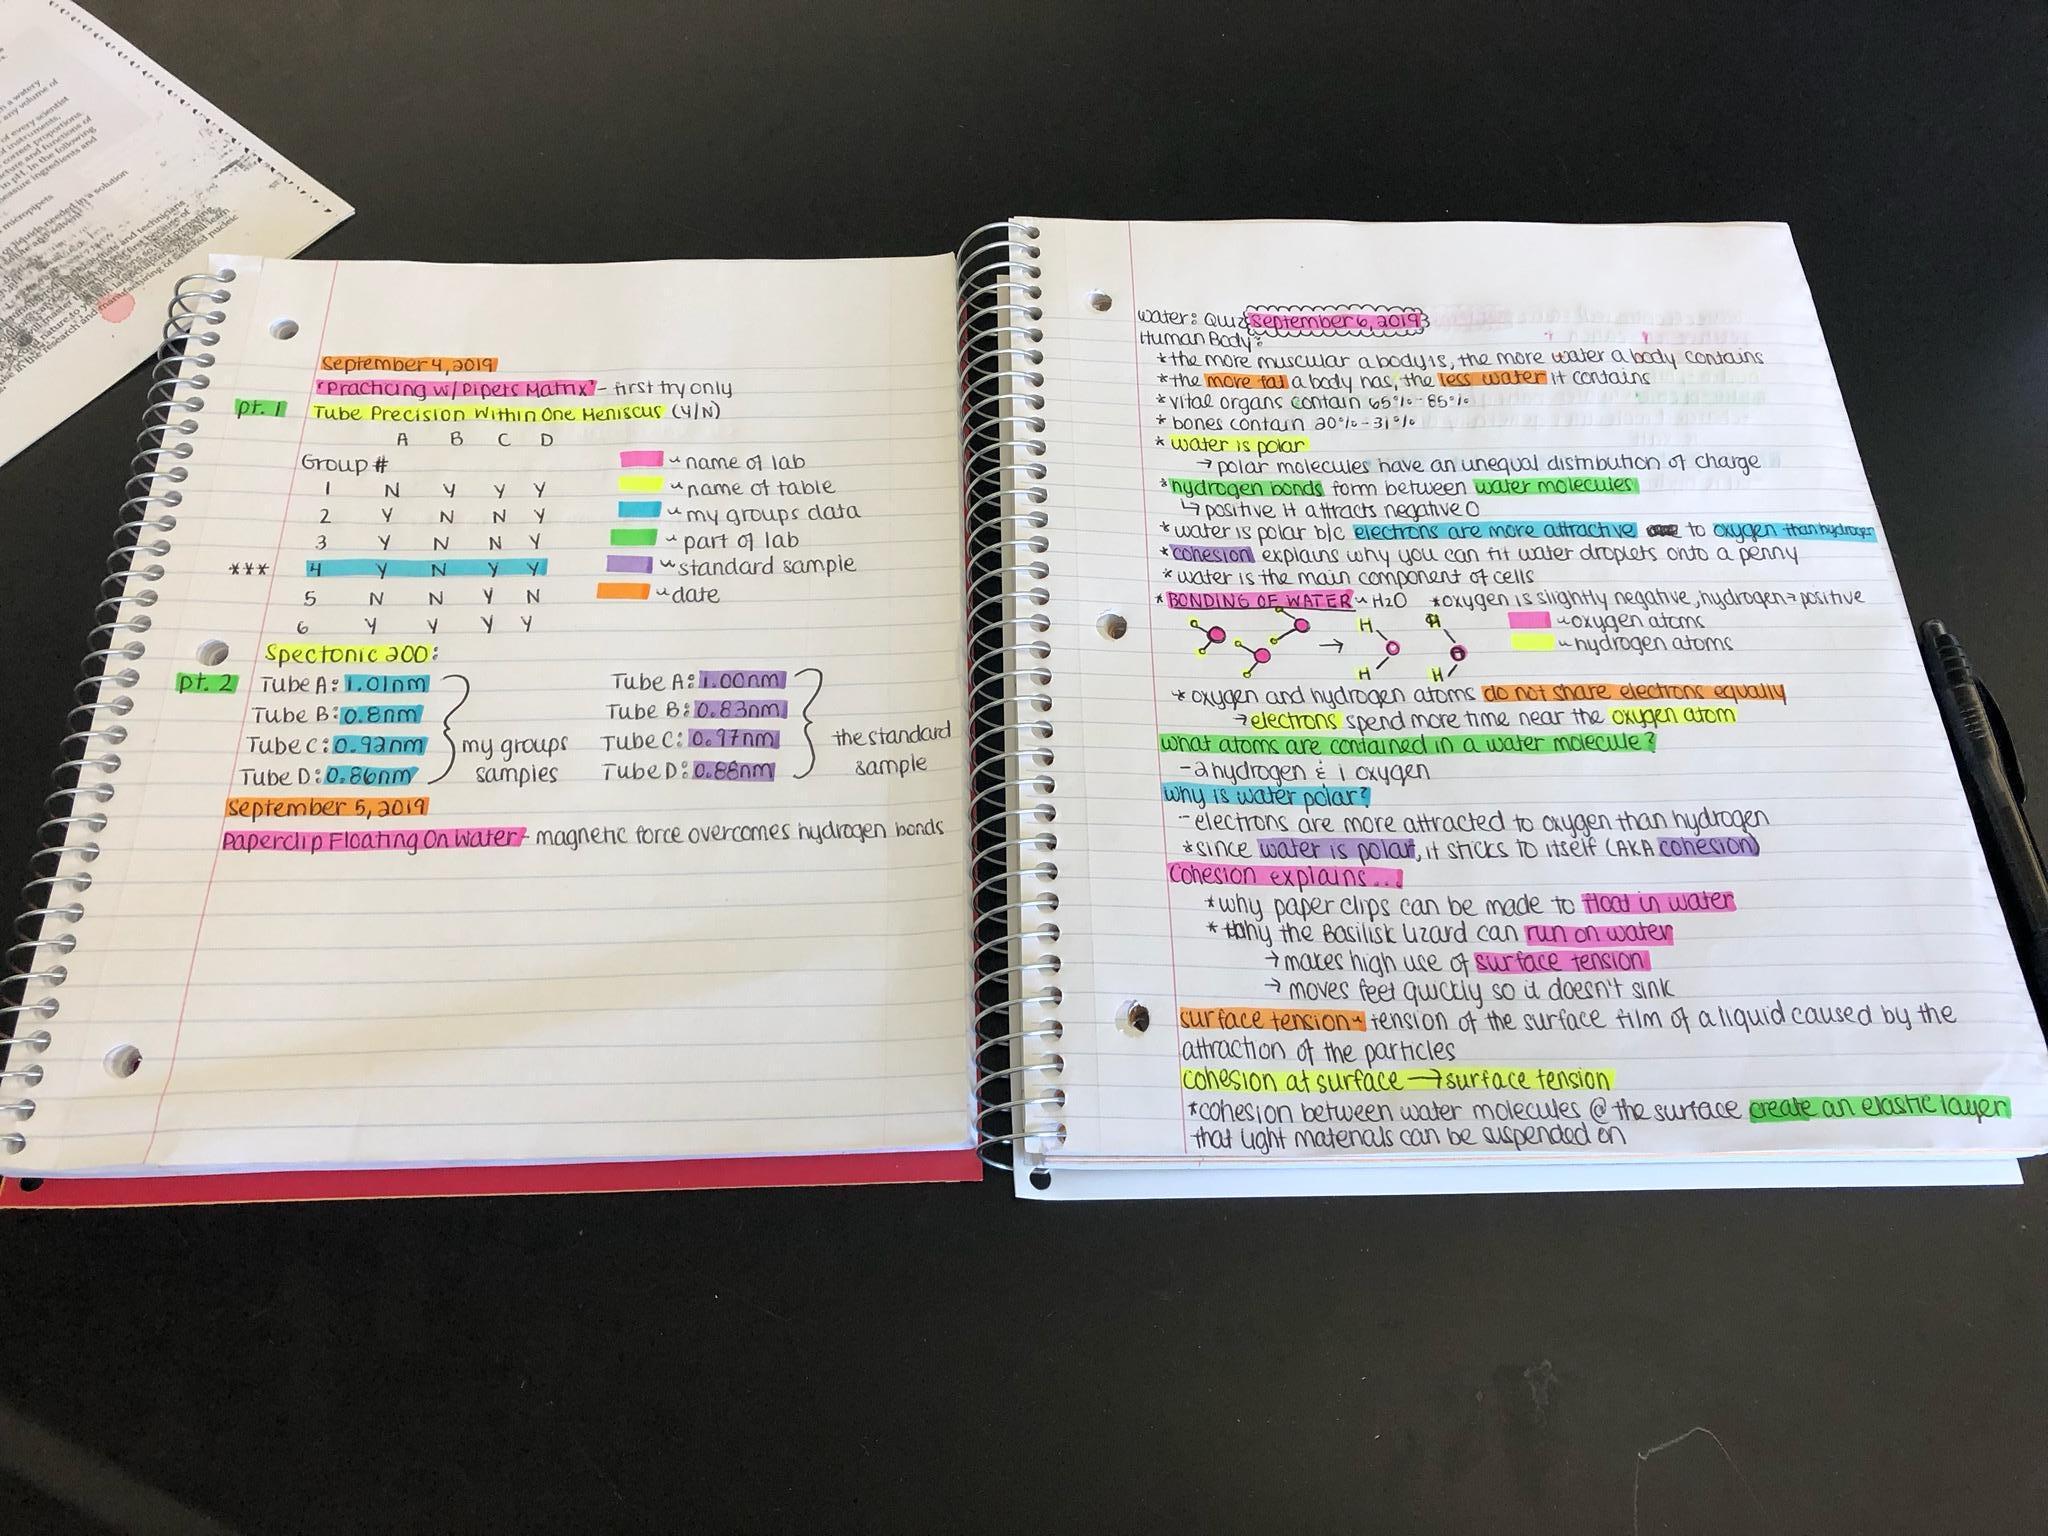 a watery
any volume of
of every scientist
of instruments,
correct proportions
and functions of
in pH. in the following
measure ingredients and
micropipets
needed in a solution
and technicians
first because of
in the research and manufacturing of selected nucleic
September 4, 2019
"Practicing w/ Pipets Matrix" - first try only
pt. 1 Tube Precision Within One Meniscus (Y/N)
A B C D
Group #
1 N Y Y Y
2 Y N N Y
3 Y N N Y
*** 4 Y N Y Y
5 N N Y N
6 Y Y Y Y
~ name of lab
~ name of table
~ my groups data
~ part of lab
~ standard sample
~ date
Spectonic 200:
pt. 2 Tube A: 1.01nm
Tube B: 0.8nm
Tube C: 0.92nm
Tube D: 0.86nm
my groups
samples
Tube A: 1.00nm
Tube B: 0.83nm
Tube C: 0.97nm
Tube D: 0.88nm
the standard
sample
September 5, 2019
Paperclip Floating On Water - magnetic force overcomes hydrogen bonds
Water: Quiz September 6, 2019
Human Body:
*the more muscular a body is, the more water a body contains
*the more fat a body has, the less water it contains
*vital organs contain 65%-85%
*bones contain 20%-31%
*water is polar
→ polar molecules have an unequal distribution of charge
*hydrogen bonds form between water molecules
↳ positive H attracts negative O
*water is polar b/c electrons are more attractive to oxygen than hydrogen
*cohesion explains why you can fit water droplets onto a penny
*water is the main component of cells
*BONDING OF WATER ~ H2O *oxygen is slightly negative, hydrogen → positive
H H
H H
~ oxygen atoms
~ hydrogen atoms
*oxygen and hydrogen atoms do not share electrons equally
→ electrons spend more time near the oxygen atom
what atoms are contained in a water molecule?
- 2 hydrogen & 1 oxygen
why is water polar?
- electrons are more attracted to oxygen than hydrogen
*since water is polar, it sticks to itself (AKA cohesion)
Cohesion explains...
*why paper clips can be made to float in water
*why the Basilisk Lizard can run on water
→ makes high use of surface tension
→ moves feet quickly so it doesn't sink
surface tension - tension of the surface film of a liquid caused by the
attraction of the particles
cohesion at surface → surface tension
*cohesion between water molecules @ the surface create an elastic layer
that light materials can be suspended on